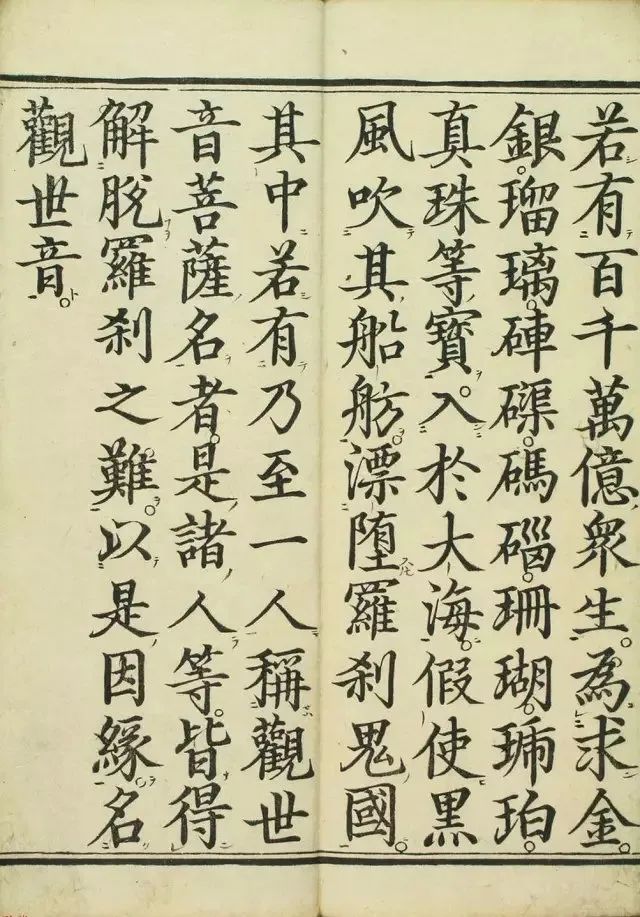 若有百千萬億衆生。為求金。
銀。瑠璃。硨磲。碼碯。珊瑚。琥珀。
真珠等寶。入於大海。假使黒
風吹其船舫。漂堕羅刹鬼國。
其中若有乃至一人稱觀世
音菩薩名者。是諸人等。皆得
解脱羅刹之難。以是因緣。名
觀世音。